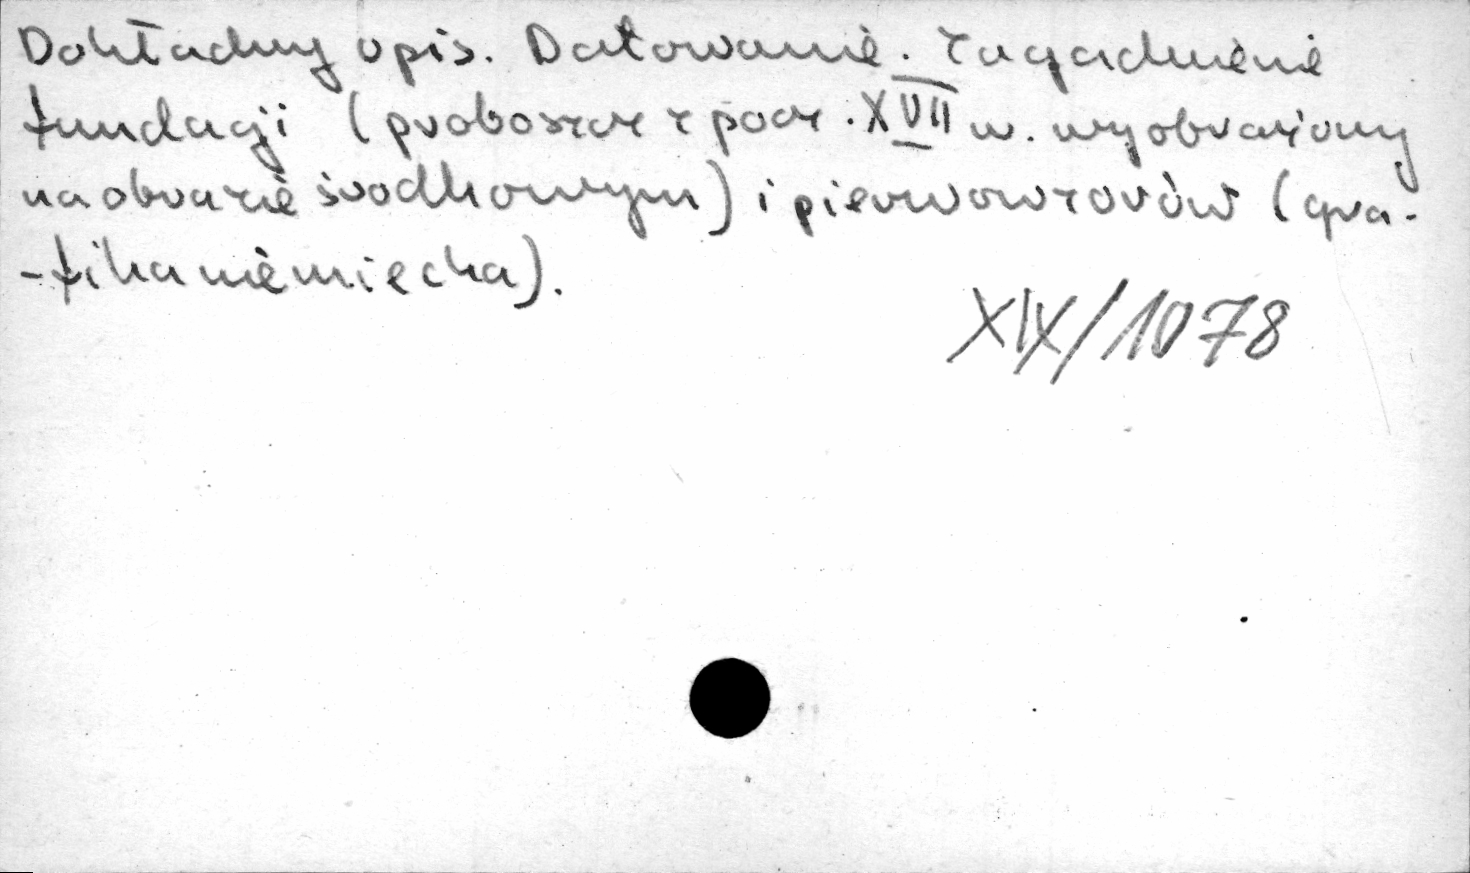 Dokładny opis. Datowanie. Zagadnienie
fundacji (proboszcz z pocz. XVII w. wyobrażony
na obrazie środkowym) i pierwowzorów (gra-
-fika niemiecka).
XIX/1078